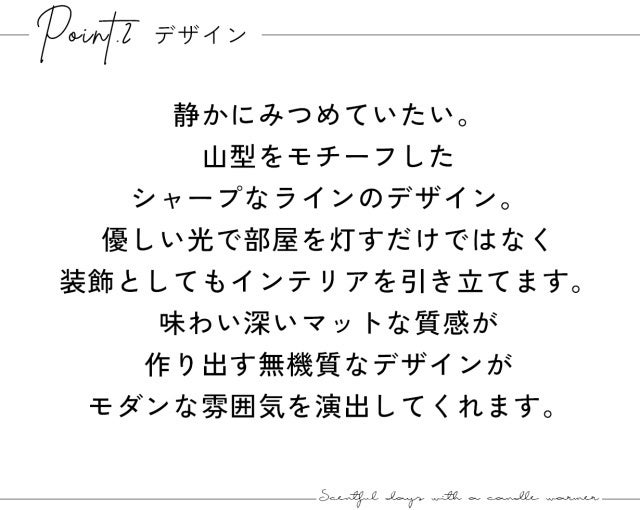 Point.2 デザイン
静かにみつめていたい。
山型をモチーフした
シャープなラインのデザイン。
優しい光で部屋を灯すだけではなく
装飾としてもインテリアを引き立てます。
味わい深いマットな質感が
作り出す無機質なデザインが
モダンな雰囲気を演出してくれます。
Scentful days with a candle warmer